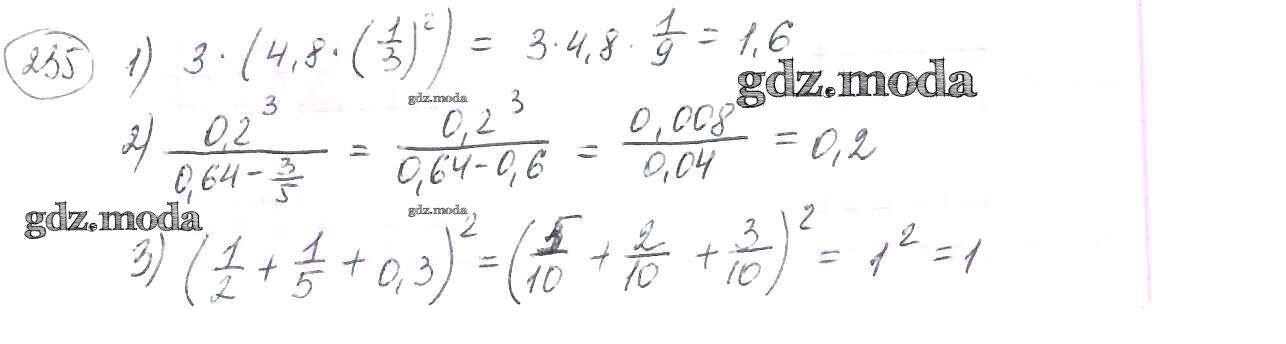 235 1) 3 · (4,8 · (1/3)²) = 3 · 4,8 · 1/9 = 1,6
gdz.moda
gdz.moda
2) 0,2³/(0,64 - 3/5) = 0,2³/(0,64 - 0,6) = 0,008/0,04 = 0,2
gdz.moda
gdz.moda
3) (1/2 + 1/5 + 0,3)² = (5/10 + 2/10 + 3/10)² = 1² = 1